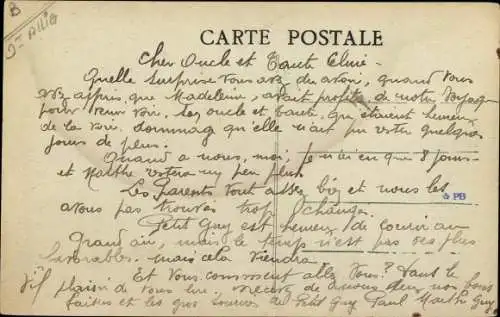 B
Dt Allier
CARTE POSTALE
Cher Oncle et Tante Elmie -
Quelle surprise vous avez du avoir, quand vous
avez appris, que Madeleine, avait profité de notre voyage
pour venir voir. Ses oncle et tante. Qui étaient heureux
de la voir. Dommag qu'elle n'ait pu rester quelques
jours de plus.
Quand a nous, moi, je n'ai eu que 8 jours
et Marthe restera un peu plus
Les parents vont assez bien et nous les
avons pas trouvés trop changés.
PB
Petit Guy est heureux de courir au
Grand air, mais le temps n'est pas des plus
favorables. mais cela viendra
Et vous comment allez vous? Tante
plaisir de vous lire recevez de nous deux nos bons
et les gros de Petit Guy Paul Marthe Guy